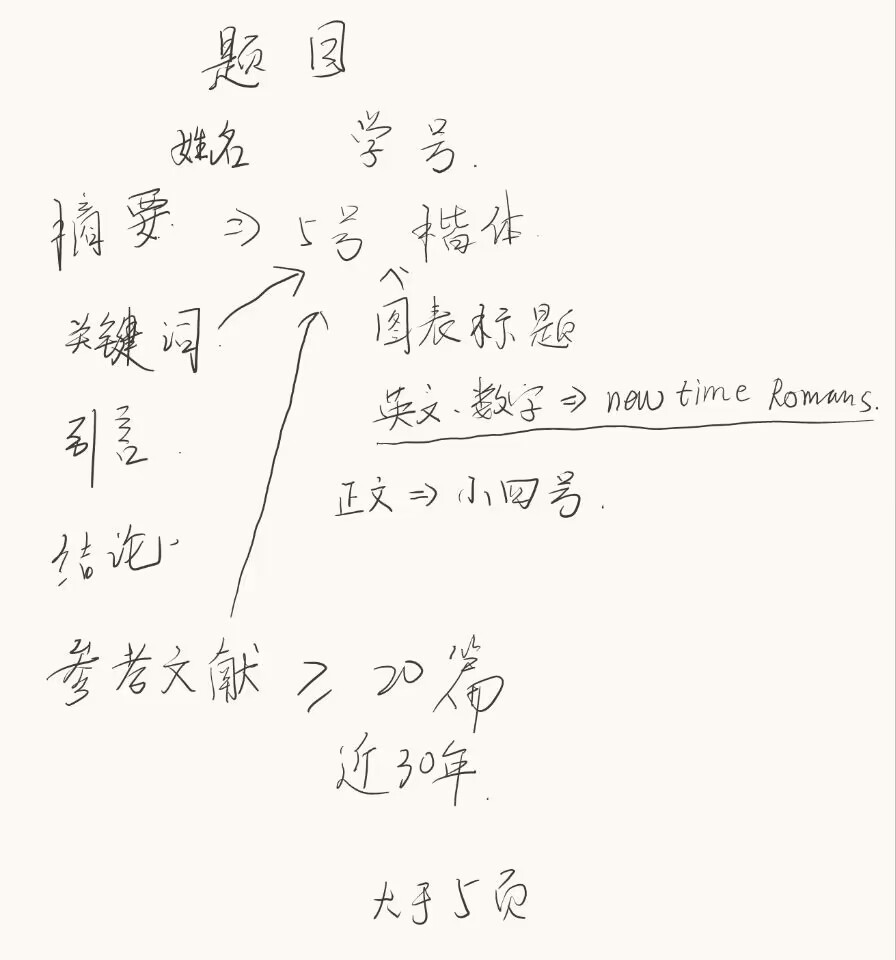 题目
姓名 学号.
摘要 ⇒ 5号 楷体.
关键词.
图表标题
英文、数字 ⇒ new time Romans.
引言.
正文 ⇒ 小四号.
结论.
参考文献 ≥ 20篇
近30年.
大于5页